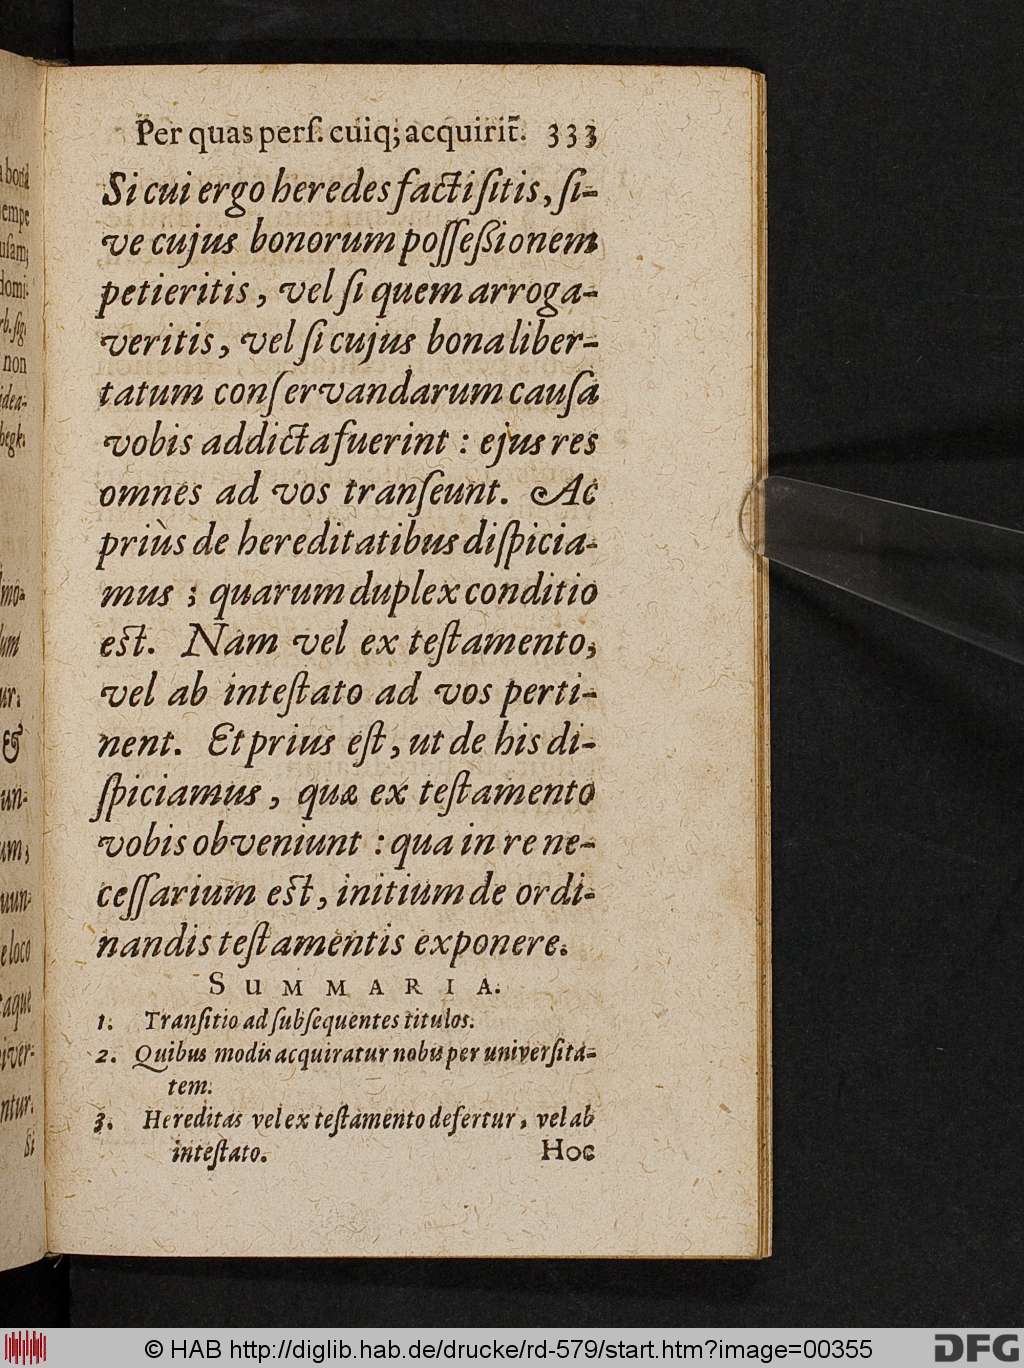 Per quas perſ. cuiq; acquirit̃. 333
Si cui ergo heredes facti ſitis, ſi-
ve cujus bonorum poſſeßionem
petieritis, vel ſi quem arroga-
veritis, vel ſi cujus bona liber-
tatum conſervandarum cauſa
vobis addicta fuerint : ejus res
omnes ad vos tranſeunt. Ac
priùs de hereditatibus diſpicia-
mus ; quarum duplex conditio
est. Nam vel ex teſtamento,
vel ab inteſtato ad vos perti-
nent. Et prius eſt, ut de his di-
ſpiciamus, quæ ex teſtamento
vobis obveniunt : qua in re ne-
ceſſarium est, initium de ordi-
nandis teſtamentis exponere.
SUMMARIA.
1. Tranſitio ad ſubſequentes titulos.
2. Quibus modis acquiratur nobis per univerſita-
tem.
3. Hereditas vel ex teſtamento defertur, vel ab
inteſtato. Hoc
empe
domi-
non
idea-
&
un-
um;
uun-
e loco
taque
iver-
ntur.
Si
© HAB http://diglib.hab.de/drucke/rd-579/start.htm?image=00355
DFG